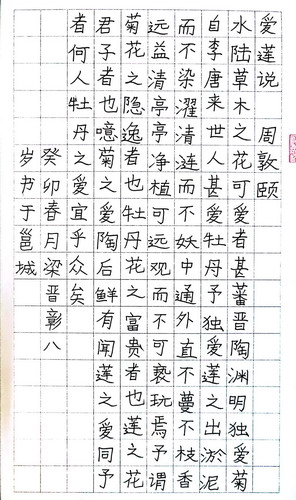 爱莲说 周敦颐
水陆草木之花可爱者甚蕃晋陶渊明独爱菊
自李唐来世人甚爱牡丹予独爱莲之出淤泥
而不染濯清涟而不妖中通外直不蔓不枝香
远益清亭亭净植可远观而不可亵玩焉予谓
菊花之隐逸者也牡丹花之富贵者也莲之花
君子者也噫菊之爱陶后鲜有闻莲之爱同予
者何人牡丹之爱宜乎众矣
癸卯春月梁晋彰八
岁书于邕城